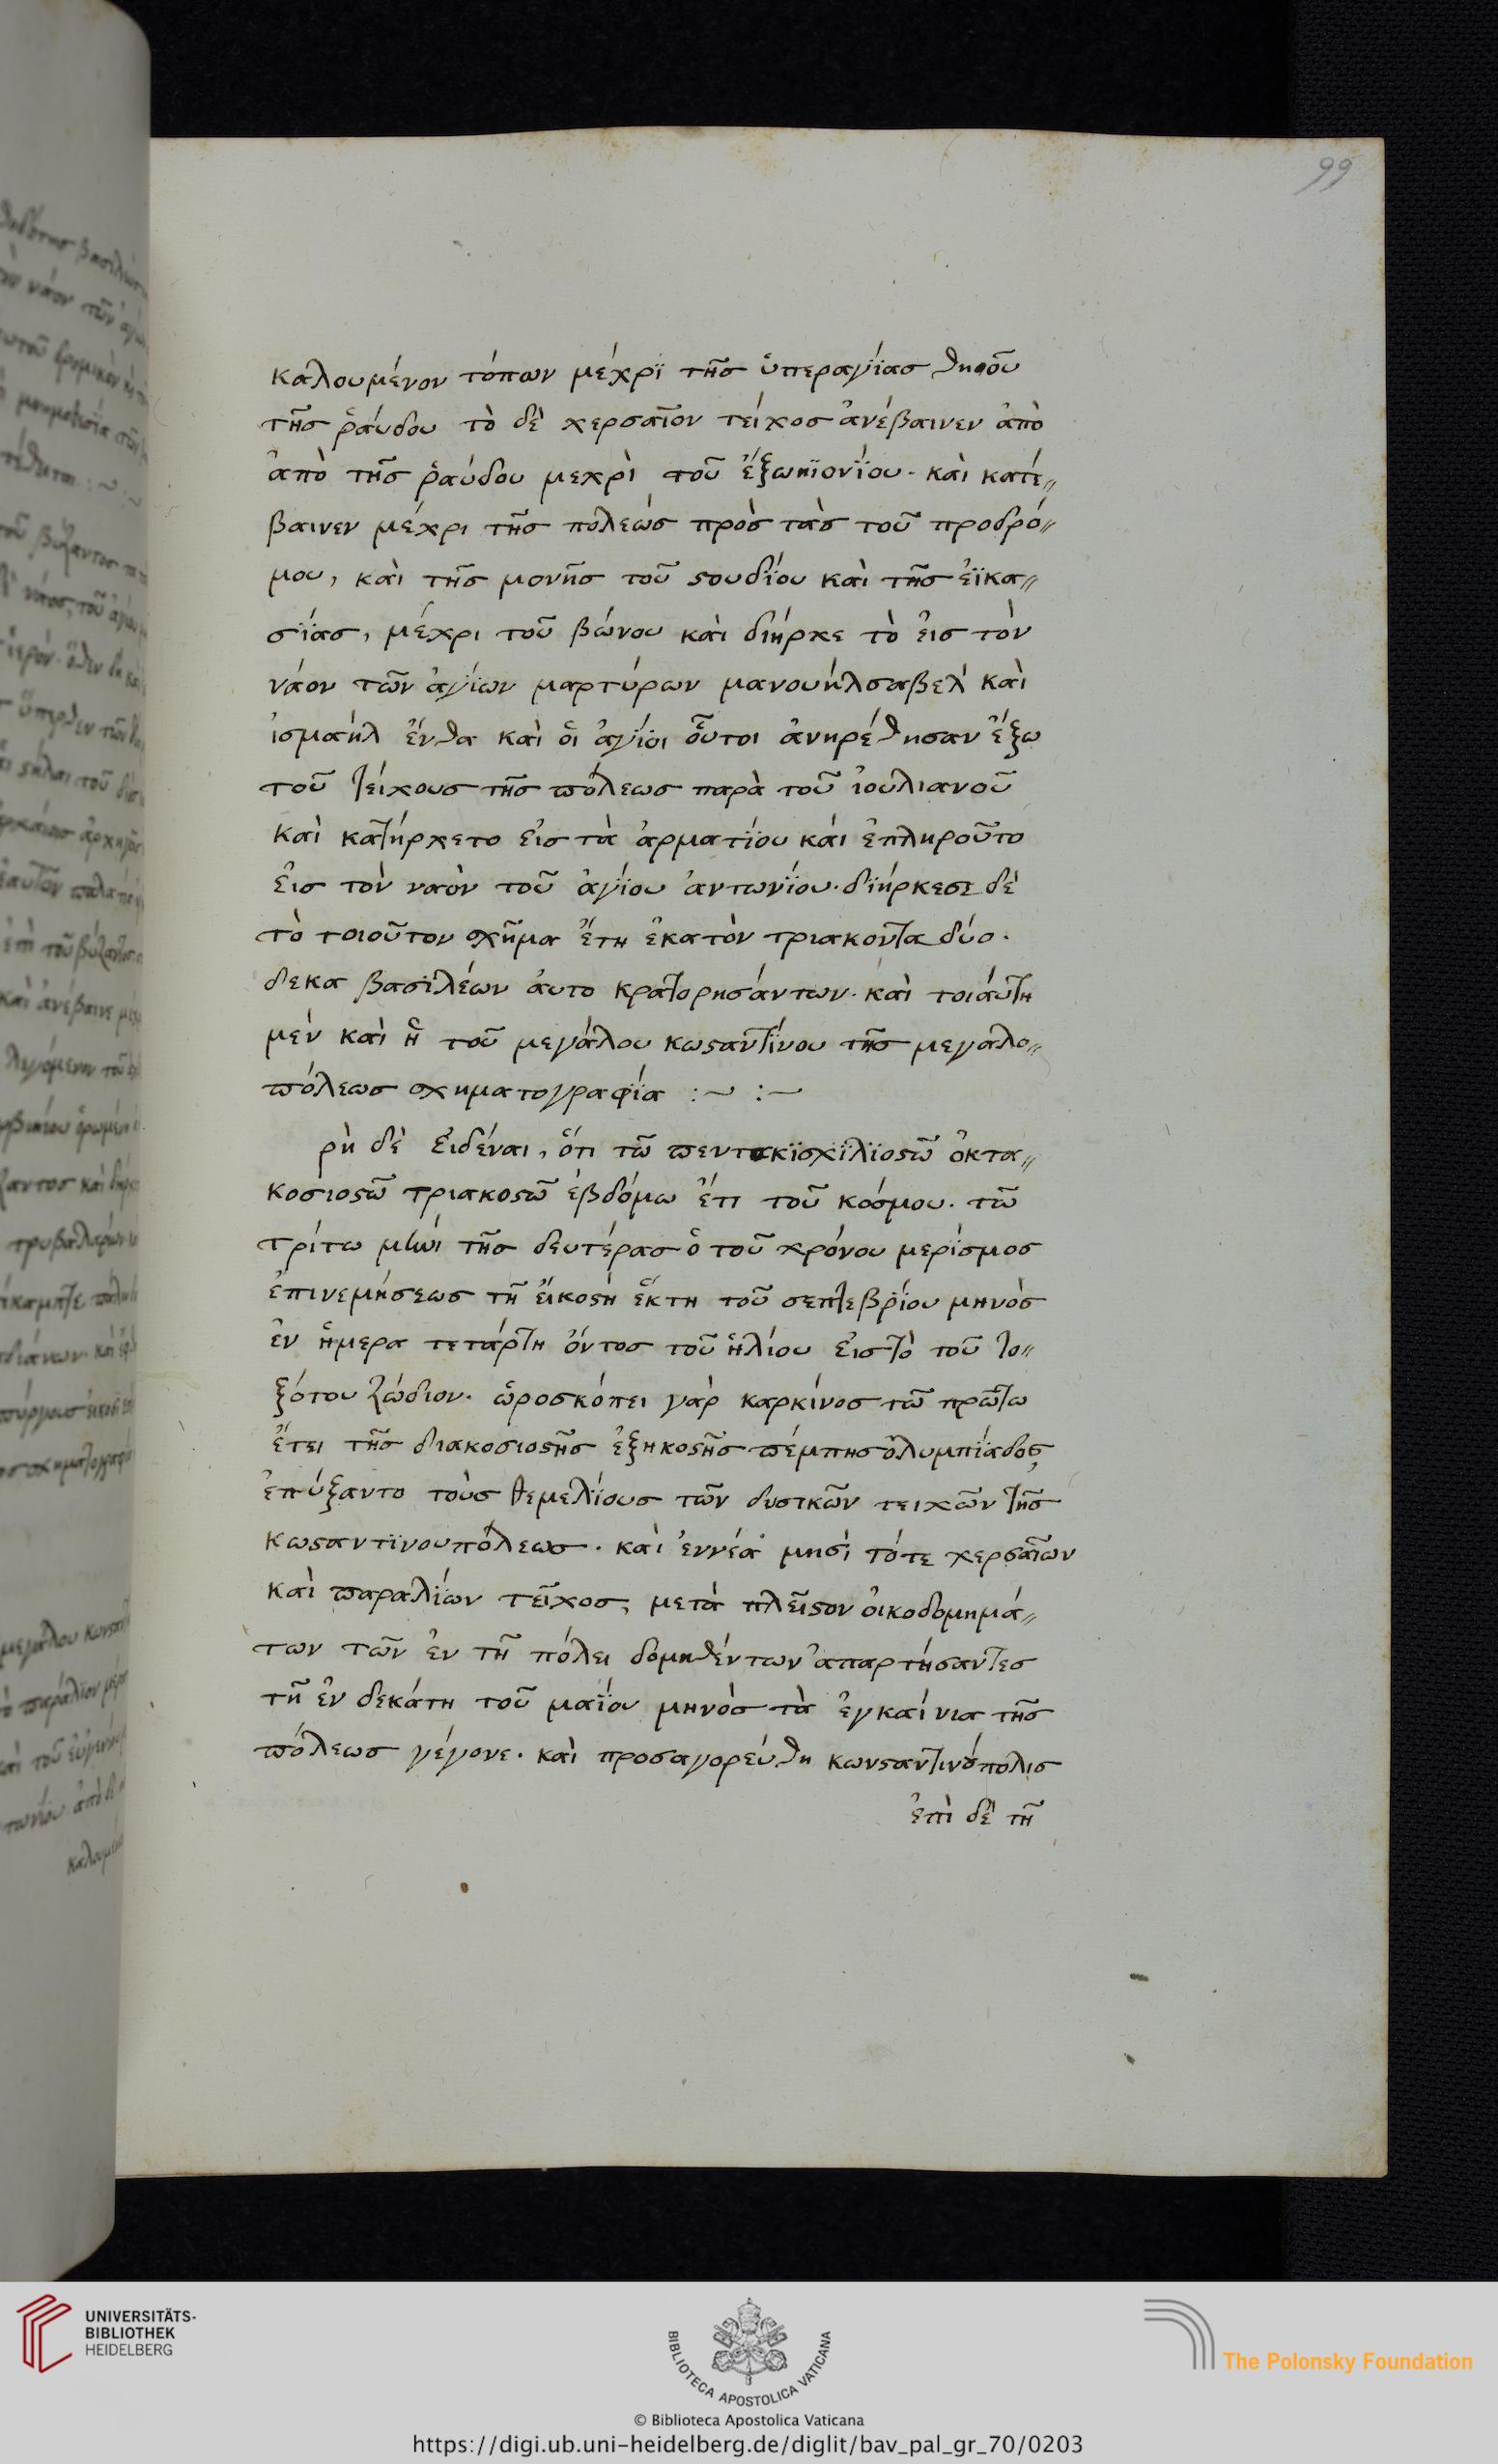 99
καλουμένον τόπων μέχρϊ τῆς ὑπεραγίας θηοῦ
τῆς ῥάυδου τὸ δὲ χερσαῖον τείχος ἀνέβαινεν ἀπὸ
ἀπὸ τῆς ῥαύδου μεχρὶ τοῦ ἐξωκϊονΐου. καὶ κατέ〃
βαινεν μέχρι τῆς πόλεώς πρὸς τὰς τοῦ προδρό〃
μου, καὶ τῆς μονῆς τοῦ ϛουδΐου καὶ τῆς ἐϊκα〃
σΐας, μέχρι τοῦ βώνου καὶ διήρχε τὸ ἐις τὸν
νάον τῶν ἁγΐων μαρτύρων μανουήλσαβελ καὶ
ἰσμαήλ ἔνθα καὶ ὁι ἁγίϊοι οὗτοι ἀνηρέθησαν ἔξω
τοῦ τείχους τῆς πόλεως παρὰ τοῦ ἰουλιανοῦ
καὶ κατήρχετο εἰς τὰ ἁρματΐου κάι ἐπληροῦτο
ἐις τὸν ναὸν τοῦ ἁγΐου ἀντωνΐου. δϊήρκεσε δὲ
τὸ τοιοῦτον σχῆμα ἔτη ἑκατὸν τριακοντα δύο.
δεκα βασϊλέων ἀυτο κρατορησάντων. καὶ τοιάυτη
μὲν καὶ ἡ τοῦ μεγάλου κωϛαντΐνου τῆς μεγαλο〃
πόλεως σχηματογραφΐα :~ :~
ρὴ δὲ ἐιδέναι, ὅτι τῶ πεντακϊσχϊλϊοϛῶ ὀκτα〃
κοσιοϛῶ τριακοϛῶ ἑβδόμω ἔτι τοῦ κόσμου. τῶ
τρίτω μηνὶ τῆς δευτέρας ὁ τοῦ χρόνου μερίσμος
ἐπινεμήσεως τῆ ἐικοϛὴ ἕκτη τοῦ σεπτεβρΐου μηνὸς
ἐν ἡμερα τετάρτη ὄντος τοῦ ἡλίου ἐις τὸ τοῦ το〃
ξότου ζώδιον. ὡροσκόπει γὰρ καρκίνος τῶ πρῶτω
ἔτει τῆς διακοσιοϛῆς ἑξηκοϛῆς πέμπης ὀλυμπϊάδος
ἐπύξαντο τοὺς θεμελΐους τῶν δυσικῶν τειχῶν τῆς
κωϛαντϊνουπόλεως. καὶ ἐννέα μησὶ τότε χερσαῖων
καὶ παραλΐων τεῖχος, μετὰ πλεῖϛον ὀικοδομημά〃
των τῶν ἐν τῆ πόλει δομηθέντων ἀπαρτήσαντες
τῆ ἐν δεκάτη τοῦ μαΐου μηνὸς τὰ ἐγκαίνια τῆς
πόλεως γέγονε. καὶ προσαγορεύθη κωνϛαντινόπολις
ἐπὶ δὲ τῆ
UNIVERSITÄTS-
BIBLIOTHEK
HEIDELBERG
BIBLIOTECA APOSTOLICA VATICANA
The Polonsky Foundation
© Biblioteca Apostolica Vaticana
https://digi.ub.uni-heidelberg.de/diglit/bav_pal_gr_70/0203